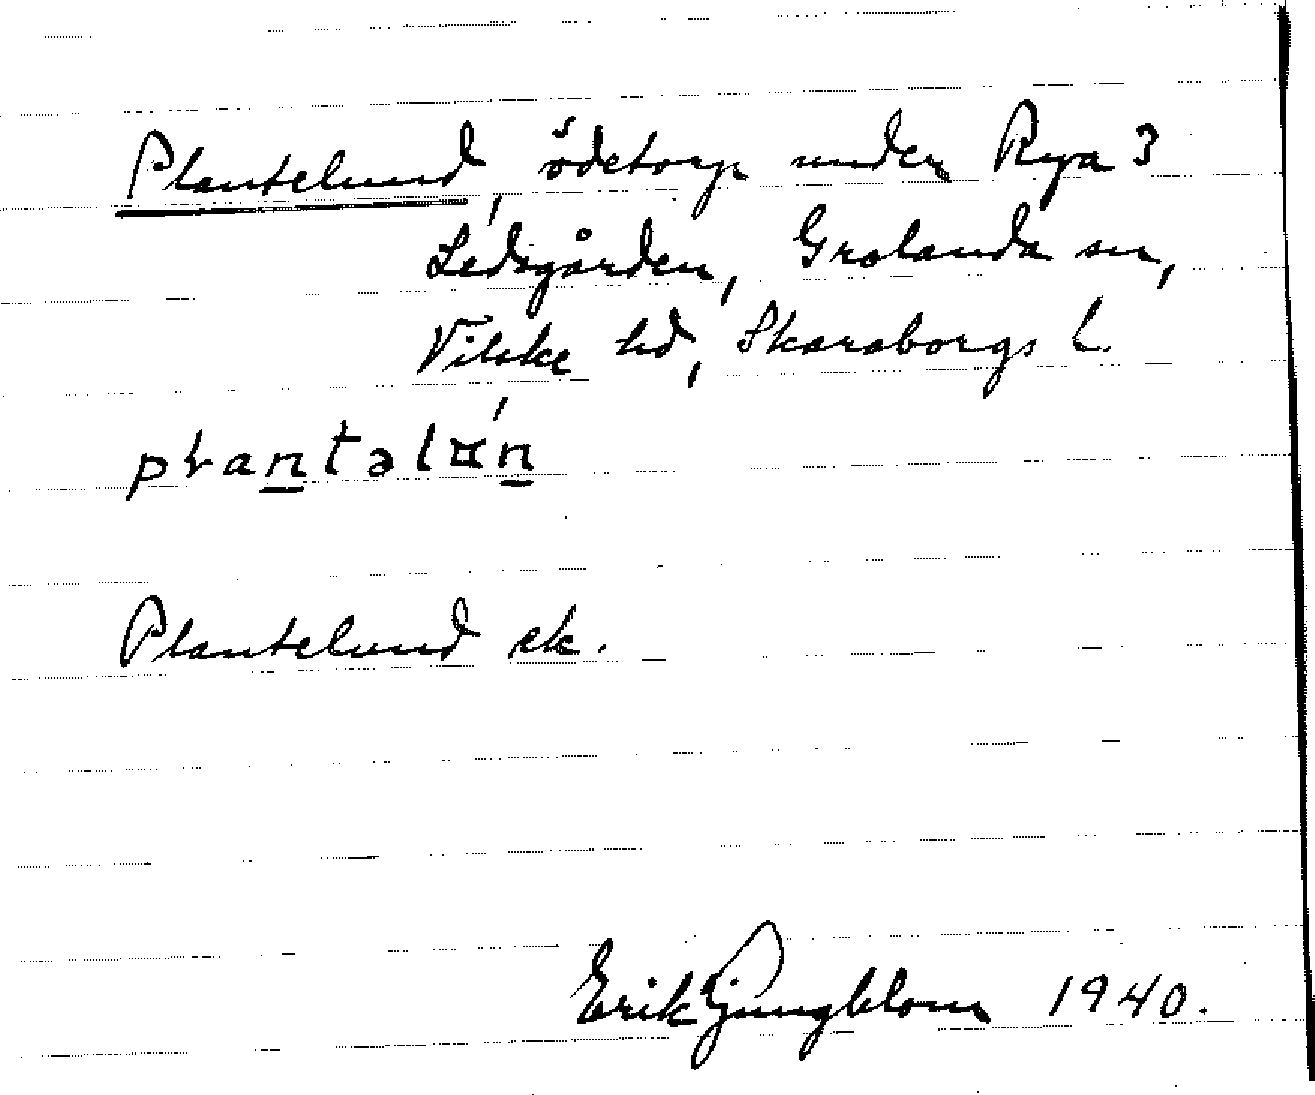 Plantelund, ödetorp under Rya 3
Ledsgården, Grolanda sn,
Vilske hd, Skaraborgs l.
plantəl 'n
Plantelund ek.
Erik Ljungblom 1940.